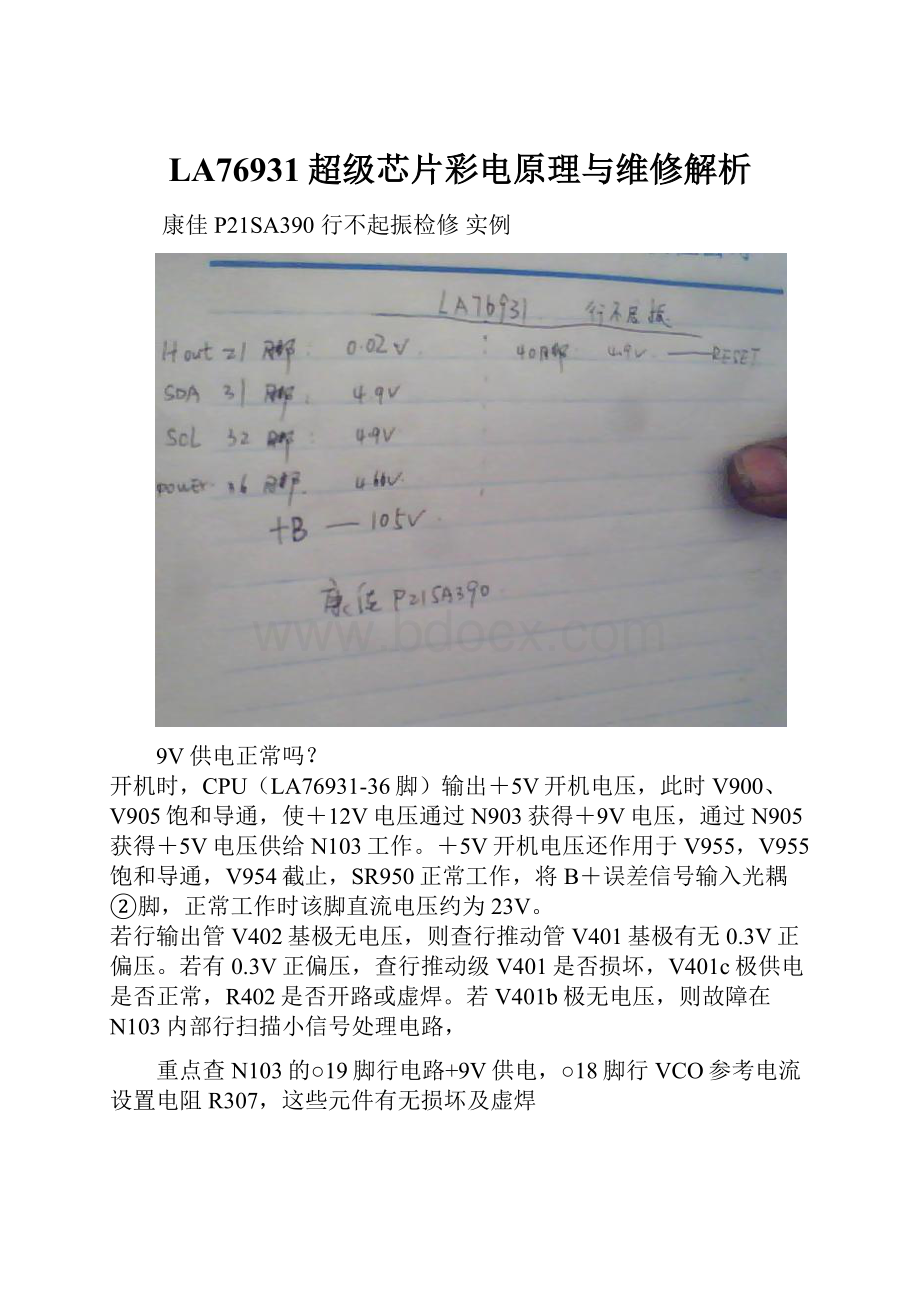 LA76931超级芯片彩电原理与维修解析
康佳P21SA390 行不起振检修 实例
LA76931 行不启振
Hout 21脚: 0.02V : 40脚 4.9V —— RESET
SDA 31脚: 4.9V
SCL 32脚: 4.9V
power. 36脚. 4.60V
+B — 105V
康佳 P21SA390
www.bdoex.com
9V供电正常吗？
开机时，CPU（LA76931-36脚）输出＋5V开机电压，此时V900、
V905饱和导通，使＋12V电压通过N903获得＋9V电压，通过N905
获得＋5V电压供给N103工作。＋5V开机电压还作用于V955，V955
饱和导通，V954截止，SR950正常工作，将B＋误差信号输入光耦
②脚，正常工作时该脚直流电压约为23V。
若行输出管V402基极无电压，则查行推动管V401基极有无0.3V正
偏压。若有0.3V正偏压，查行推动级V401是否损坏，V401c极供电
是否正常，R402是否开路或虚焊。若V401b极无电压，则故障在
N103内部行扫描小信号处理电路，
重点查N103的○19脚行电路+9V供电，○18脚行VCO参考电流
设置电阻R307，这些元件有无损坏及虚焊